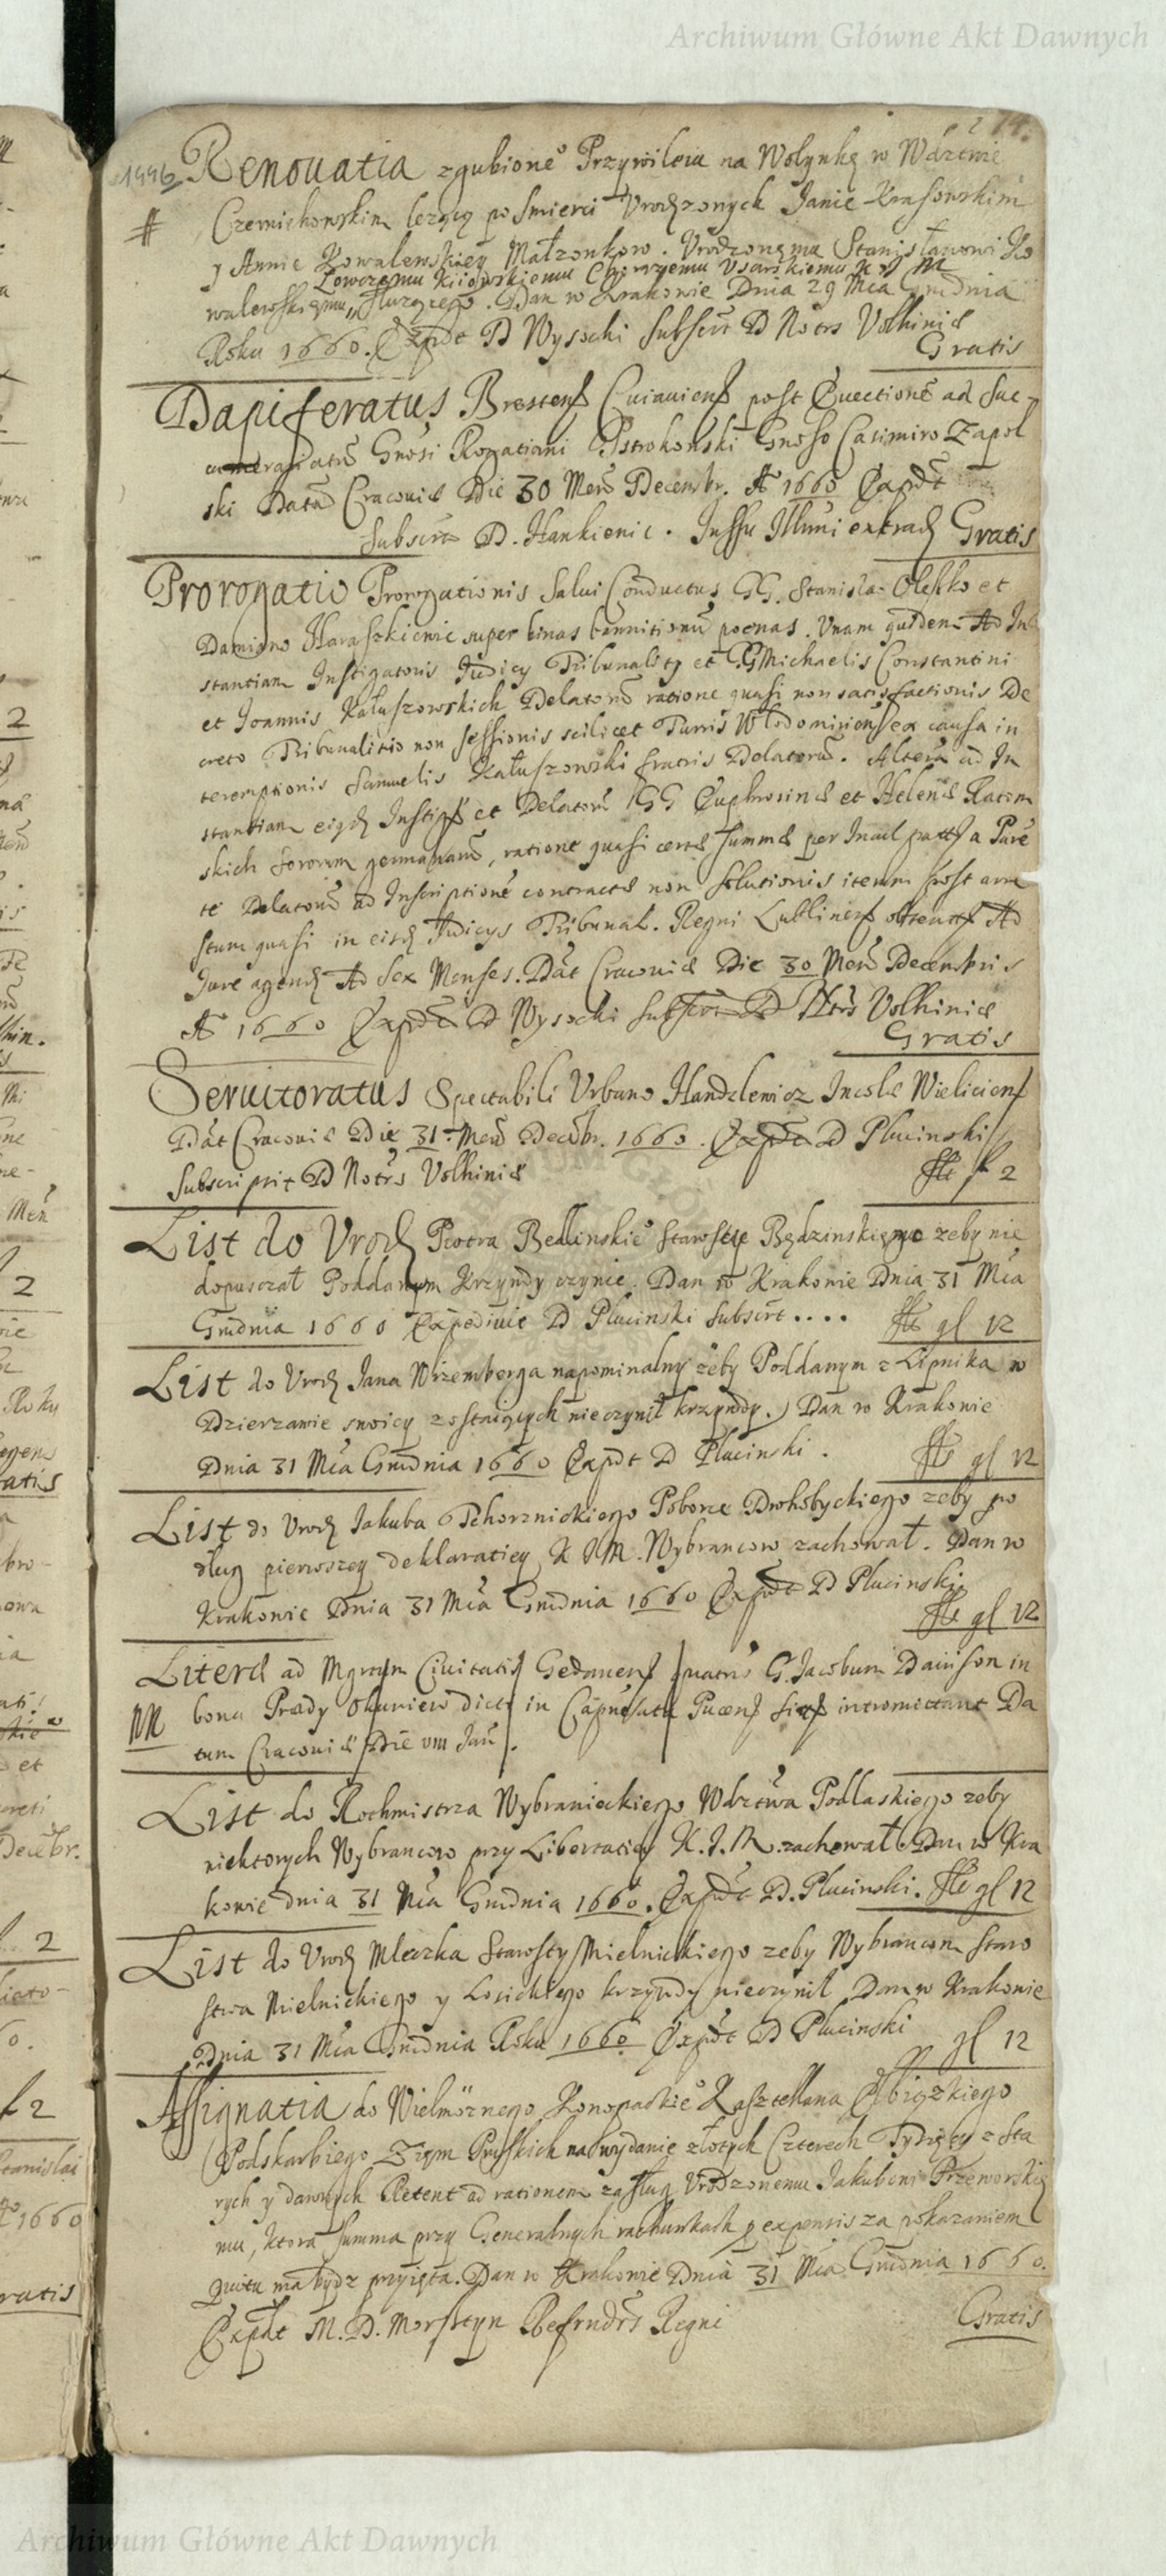 Archiwum Główne Akt Dawnych
274.
1996 Renouatia zgubione° Przywileiu na Wolynkę w Wdztwie
# Czernichowskim lezącą po śmierci Vrodzonych Janie Krasowskim
y Annie Kowalewskiey Małzonkow. Vrodzonęmu Stanisławowi Ko
Łowczęmu Kiiowskiemu Chorązemu Vsarskiemu K J M
walewskięmu służącego. Dan w Krakowie Dnia 29 Mca Grudnia
Roku 1660. Expdt D Wysocki subscrt D Notrs Volhiniæ
Gratis
Dapiferatus Brestens Cuiauiens post Euectionē ad suc
camerariatū Gnosi Rogatiani Pstrokonski Gnoso Casimiro Zapol
ski Datū Cracouiæ Die 30 Mens Decembr. A° 1660 Expdt
Subscrt D. Hankienic. Jussu Illmi extrad Gratis
Prorogatio Prorogationis Salui Conductus GG. Stanislao Olesko et
Damiano Haraszkienic super binas bannitionū poenas. Vnam quidem Ad In
stantiam Instigatoris Judicy Tribunalitij et GG Michaelis Constantini
et Joannis Kałuszowskich Delatorū ratione quasi non satisfactionis De
creto Tribunalitio non sessionis scilicet Turris Wlodomiriens ex causa in
teremptionis Samuelis Kałuszowski fratris Delatorū. Alterā ad In
stantiam eigd Instigs et Delatorū GG Euphrosinæ et Helenæ Ratom
skich sororum germanarū, ratione quasi certæ summæ per Inculpatos a Pare
te Delatorū ad Inscriptionē contractæ non solutionis iterum post arre
stum quasi in eisd Judicys Tribunal. Regni Lublinens obtentas Ad
Jure agend Ad Sex Menses. Dat Cracouiæ Die 30 Mens Decembris
A° 1660 Expdt D Wysocki subscrt D Ntrs Volhiniæ
Gratis
Seruitoratus Spectabili Vrbano Handzlewicz Incolæ Wieliciens
Dat Cracouiæ Die 31 Mens Decēbr. 1660. Expdt D Plucinski
Subscripsit D Notrs Volhiniæ
f 2
List do Vrod Piotra Bedlinskie° Starosty Będzinskiego zeby nie
dopusczał Poddanym Krzywdy czynic. Dan w Krakowie Dnia 31 Mca
Grudnia 1660 Expediuit D Plucinski Subscrt.... gl 12
List do Vrod Jana Wizemberga napominalny żeby Poddanym z Lipnika w
Dzierzawie swoicy zostaiących nieczynił krzywdy. Dan w Krakowie
Dnia 31 Mca Grudnia 1660 Expdt D Plucinski. gl 12
List do Vrod Jakuba Tchorznickiego Poborce Drohobyckiego zeby po
dług pierwszey deklaratiey K J M. Wybrancow zachował. Dan w
Krakowie Dnia 31 Mca Grudnia 1660 Expdt D Plucinski
gl 12
Literæ ad Mgrtum Ciuitatis Gedanens quatnus G. Jacobum Dainson in
NN bona Prædy Okuniew dicta in Capnesatu Pucens sita intromictant Da
tum Cracouiæ Die vm Jan.
List do Rochmistrza Wybranieckiego Wdztwa Podlaskiego zeby
niektorych Wybrancow przy Libertatiey K. J. M. zachował. Dan w Kra
kowie dnia 31 Mca Grudnia 1660. Expdt D. Plucinski. gl 12
List do Vrod Mleczka Starosty Mielnickiego zeby Wybrancom Staro
stwa Mielnickiego y Łosickiego krzywdy nieczynil Dan w Krakowie
Dnia 31 Mca Grudnia Roku 1660 Expdt D Plucinski gl 12
Assignatia do Wielmożnego Konopackie° Kasztellana Elbiąskiego
Podskarbiego Ziem Pruskich na wydanie złotych Czterech Tysięcy z Sta
rych y dawnych Retent ad rationem zasług Vrodzonemu Jakubowi Przeworskię
mu, ktora summa przy Generalnych rachunkach p expensis za pokazaniem
Quitu ma bydz przyięta. Dan w Krakowie Dnia 31 Mca Grudnia 1660.
Expdt M. D. Morsztyn Refrndrs Regni Gratis
Archiwum Główne Akt Dawnych